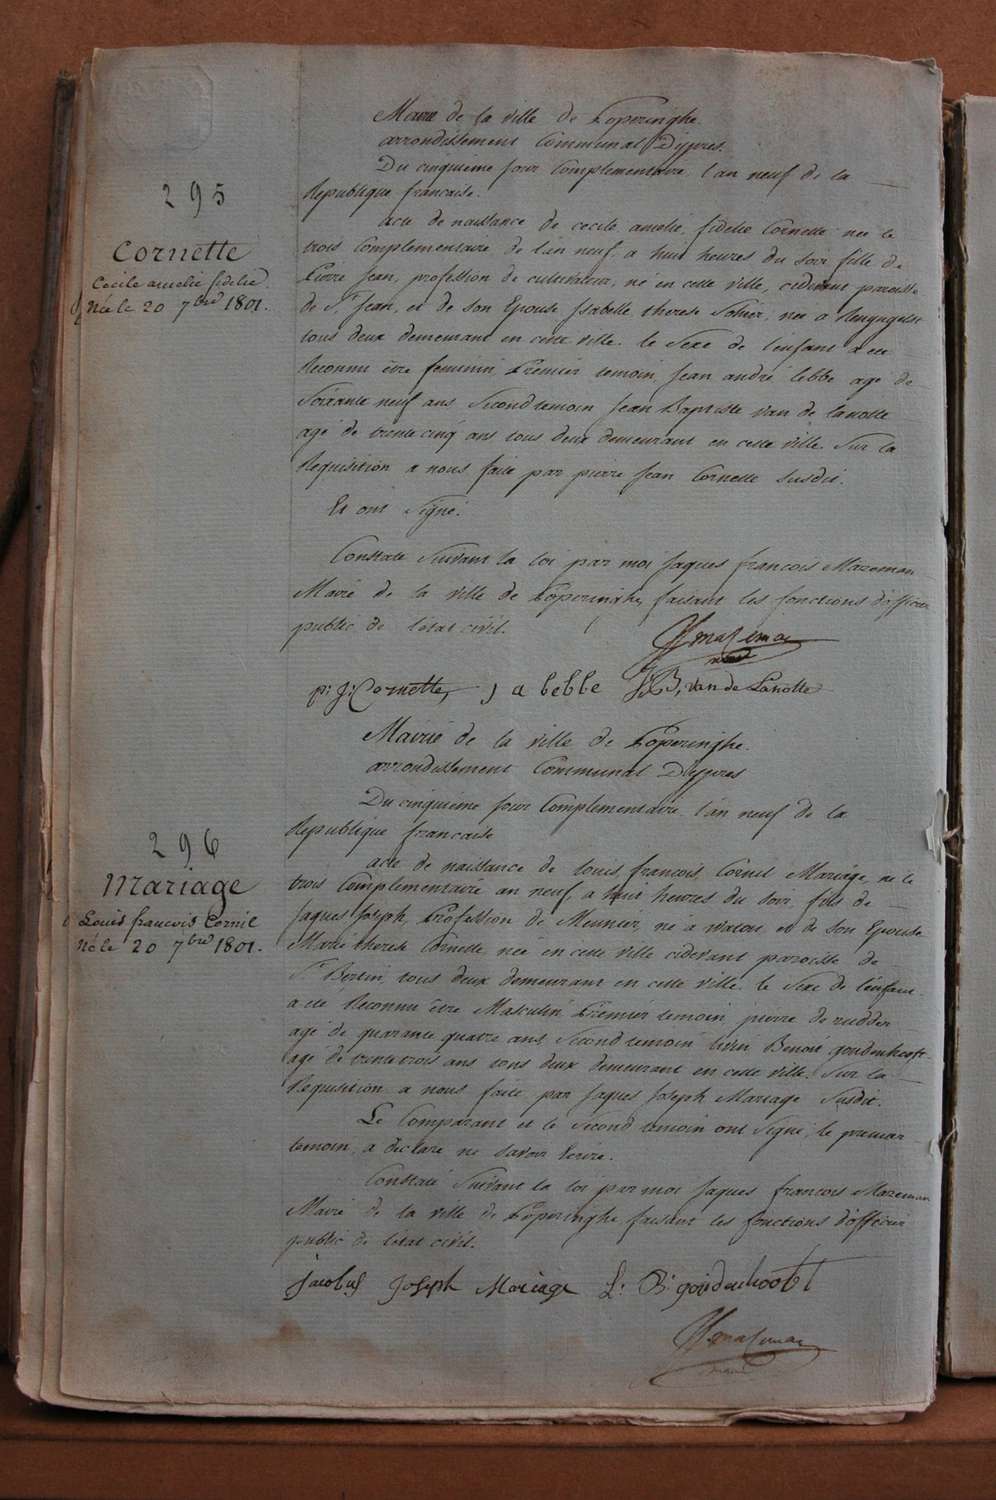 Mairie de la ville de Poperinghe
arrondissement Communal D'ypres.
Du cinquieme jour Complementaire l'an neuf de la
Republique francaise.
295
Cornette
Cecile amelie fidelie
Née le 20 7bre 1801.
acte de naissance de cecile amelie fidelie Cornette née le
trois Complementaire de l'an neuf, a huit heures du soir fille de
Pierre Jean, profession de cultivateur, né en cette ville, cidevant paroisse
de St Jean, et de son Epouse Isabelle therese Sohier, née a
tous deux demeurant en cette ville. le Sexe de l'enfant a ete
Reconnu être feminin, Premier temoin, Jean andré lebbe agé de
Soixante neuf ans Second temoin Jean Baptiste van de lanotte
agé de trente cinq ans tous deux demeurant en cette ville. Sur la
Requisition a nous faite par pierre Jean Cornette susdit.
Et ont Signé.
Constaté Suivant la loi par moi Jaques francois Mazeman
Maire de la ville de Poperinghe, faisant les fonctions d'officier
public de l'état civil.
JfmaZeman
maire
p: J: Cornette, j a lebbe J: B, van de Lanotte
Mairie de la ville de Poperinghe.
arrondissement Communal D'ypres
Du cinquieme jour Complementaire l'an neuf de la
Republique francaise
296
Mariage
Louis francois Cornil
Né le 20 7bre 1801.
acte de naissance de louis, francois, Cornil Mariage, né le
trois Complementaire an neuf, a huit heures du soir, fils de
Jaques Joseph, Profession de Meunier, né a watou, et de son Epouse
Marie therese Cornette, née en cette ville cidevant paroisse de
St Bertin, tous deux demeurant en cette ville. le Sexe de l'enfant
a ete Reconnu être Masculin, Premier temoin, pierre de rudder
agé de quarante quatre ans Second temoin livin Benoit goudenhooft
agé de trente trois ans tous deux demeurant en cette ville. Sur la
Requisition a nous faite par Jaques Joseph Mariage Susdit.
Le Comparant et le Second temoin ont Signé, le premier
temoin, a declaré ne savoir Ecrire.
Constaté Suivant la loi par moi Jaques francois Mazeman
Maire de la ville de Poperinghe faisant les fonctions d'officier
public de l'état civil.
jacobus Joseph Mariage L: B: goudenhooft
JfmaZeman
maire